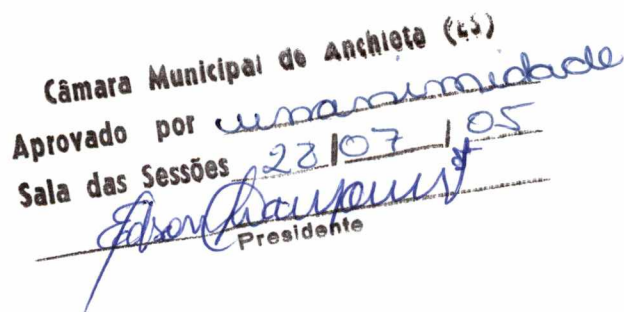 Câmara Municipal de Anchieta (ES)
Aprovado por unanimidade
Sala das Sessões 22/07/05
Edson
Presidente